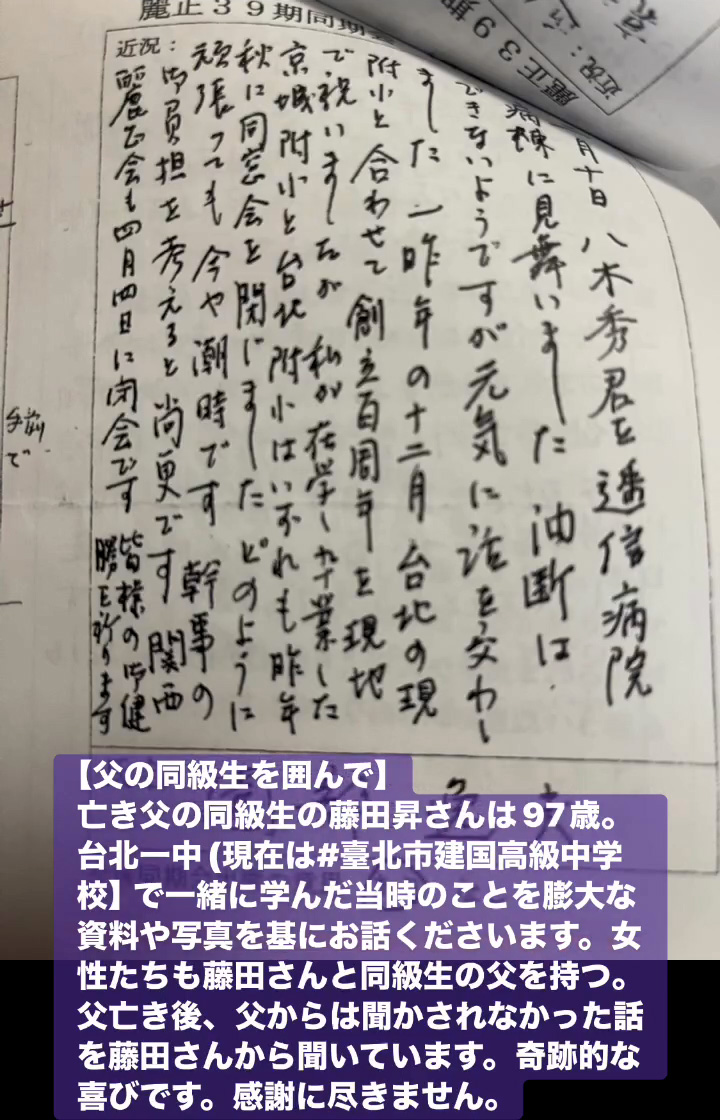 麗正３９期同期
近況：
麗正３９期
近況：
月十日 八木秀君を逓信病院
病棟に見舞いました 油断は
できないようですが元気に話を交わし
ました 一昨年の十二月 台北の現
附小と合わせて 創立百周年を現地
で祝いましたが 私が在学し卒業した
京城附小と台北附小はいずれも昨年
秋に同窓会を閉じました どのように
頑張っても 今や潮時です 幹事の
御負担を考えると尚更です 関西
麗正会も四月四日に閉会です 皆様の御健
勝を祈ります
【父の同級生を囲んで】
亡き父の同級生の藤田昇さんは97歳。
台北一中(現在は#臺北市建国高級中学
校】で一緒に学んだ当時のことを膨大な
資料や写真を基にお話くださいます。女
性たちも藤田さんと同級生の父を持つ。
父亡き後、父からは聞かされなかった話
を藤田さんから聞いています。奇跡的な
喜びです。感謝に尽きません。